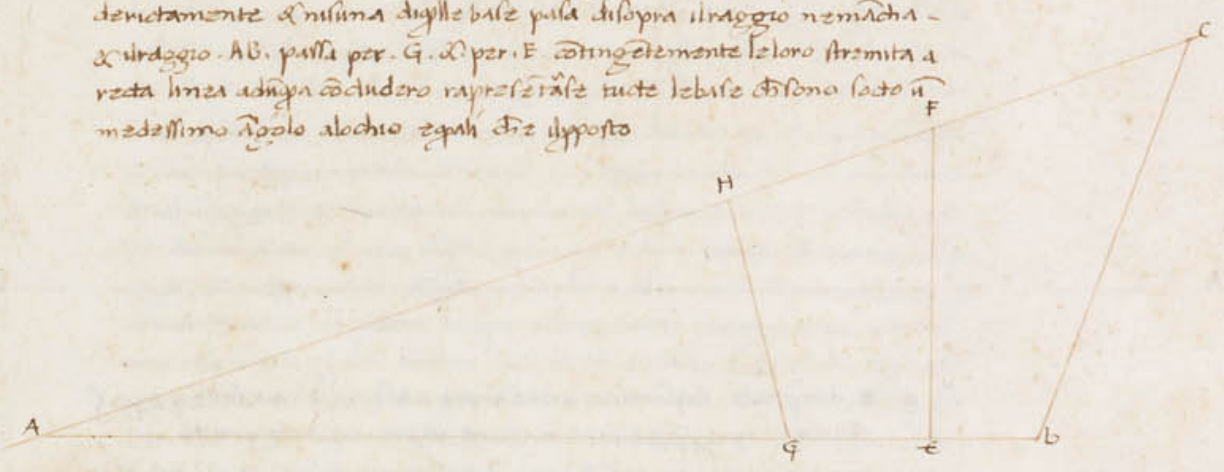 derictamente & nisuna diq̃lle base pasa disopra ilraggio nemãcha -
& ilraggio . AB . passa per . G . & per . E cõtingẽtemente leloro stremita a
recta linea adũq̃a cõcludero rapresẽtãse tucte lebase ch̃sono socto ũ
medessimo ãgolo alochio eq̃ali ch̃e ilp̃posto
C
F
H
A
G
E
b